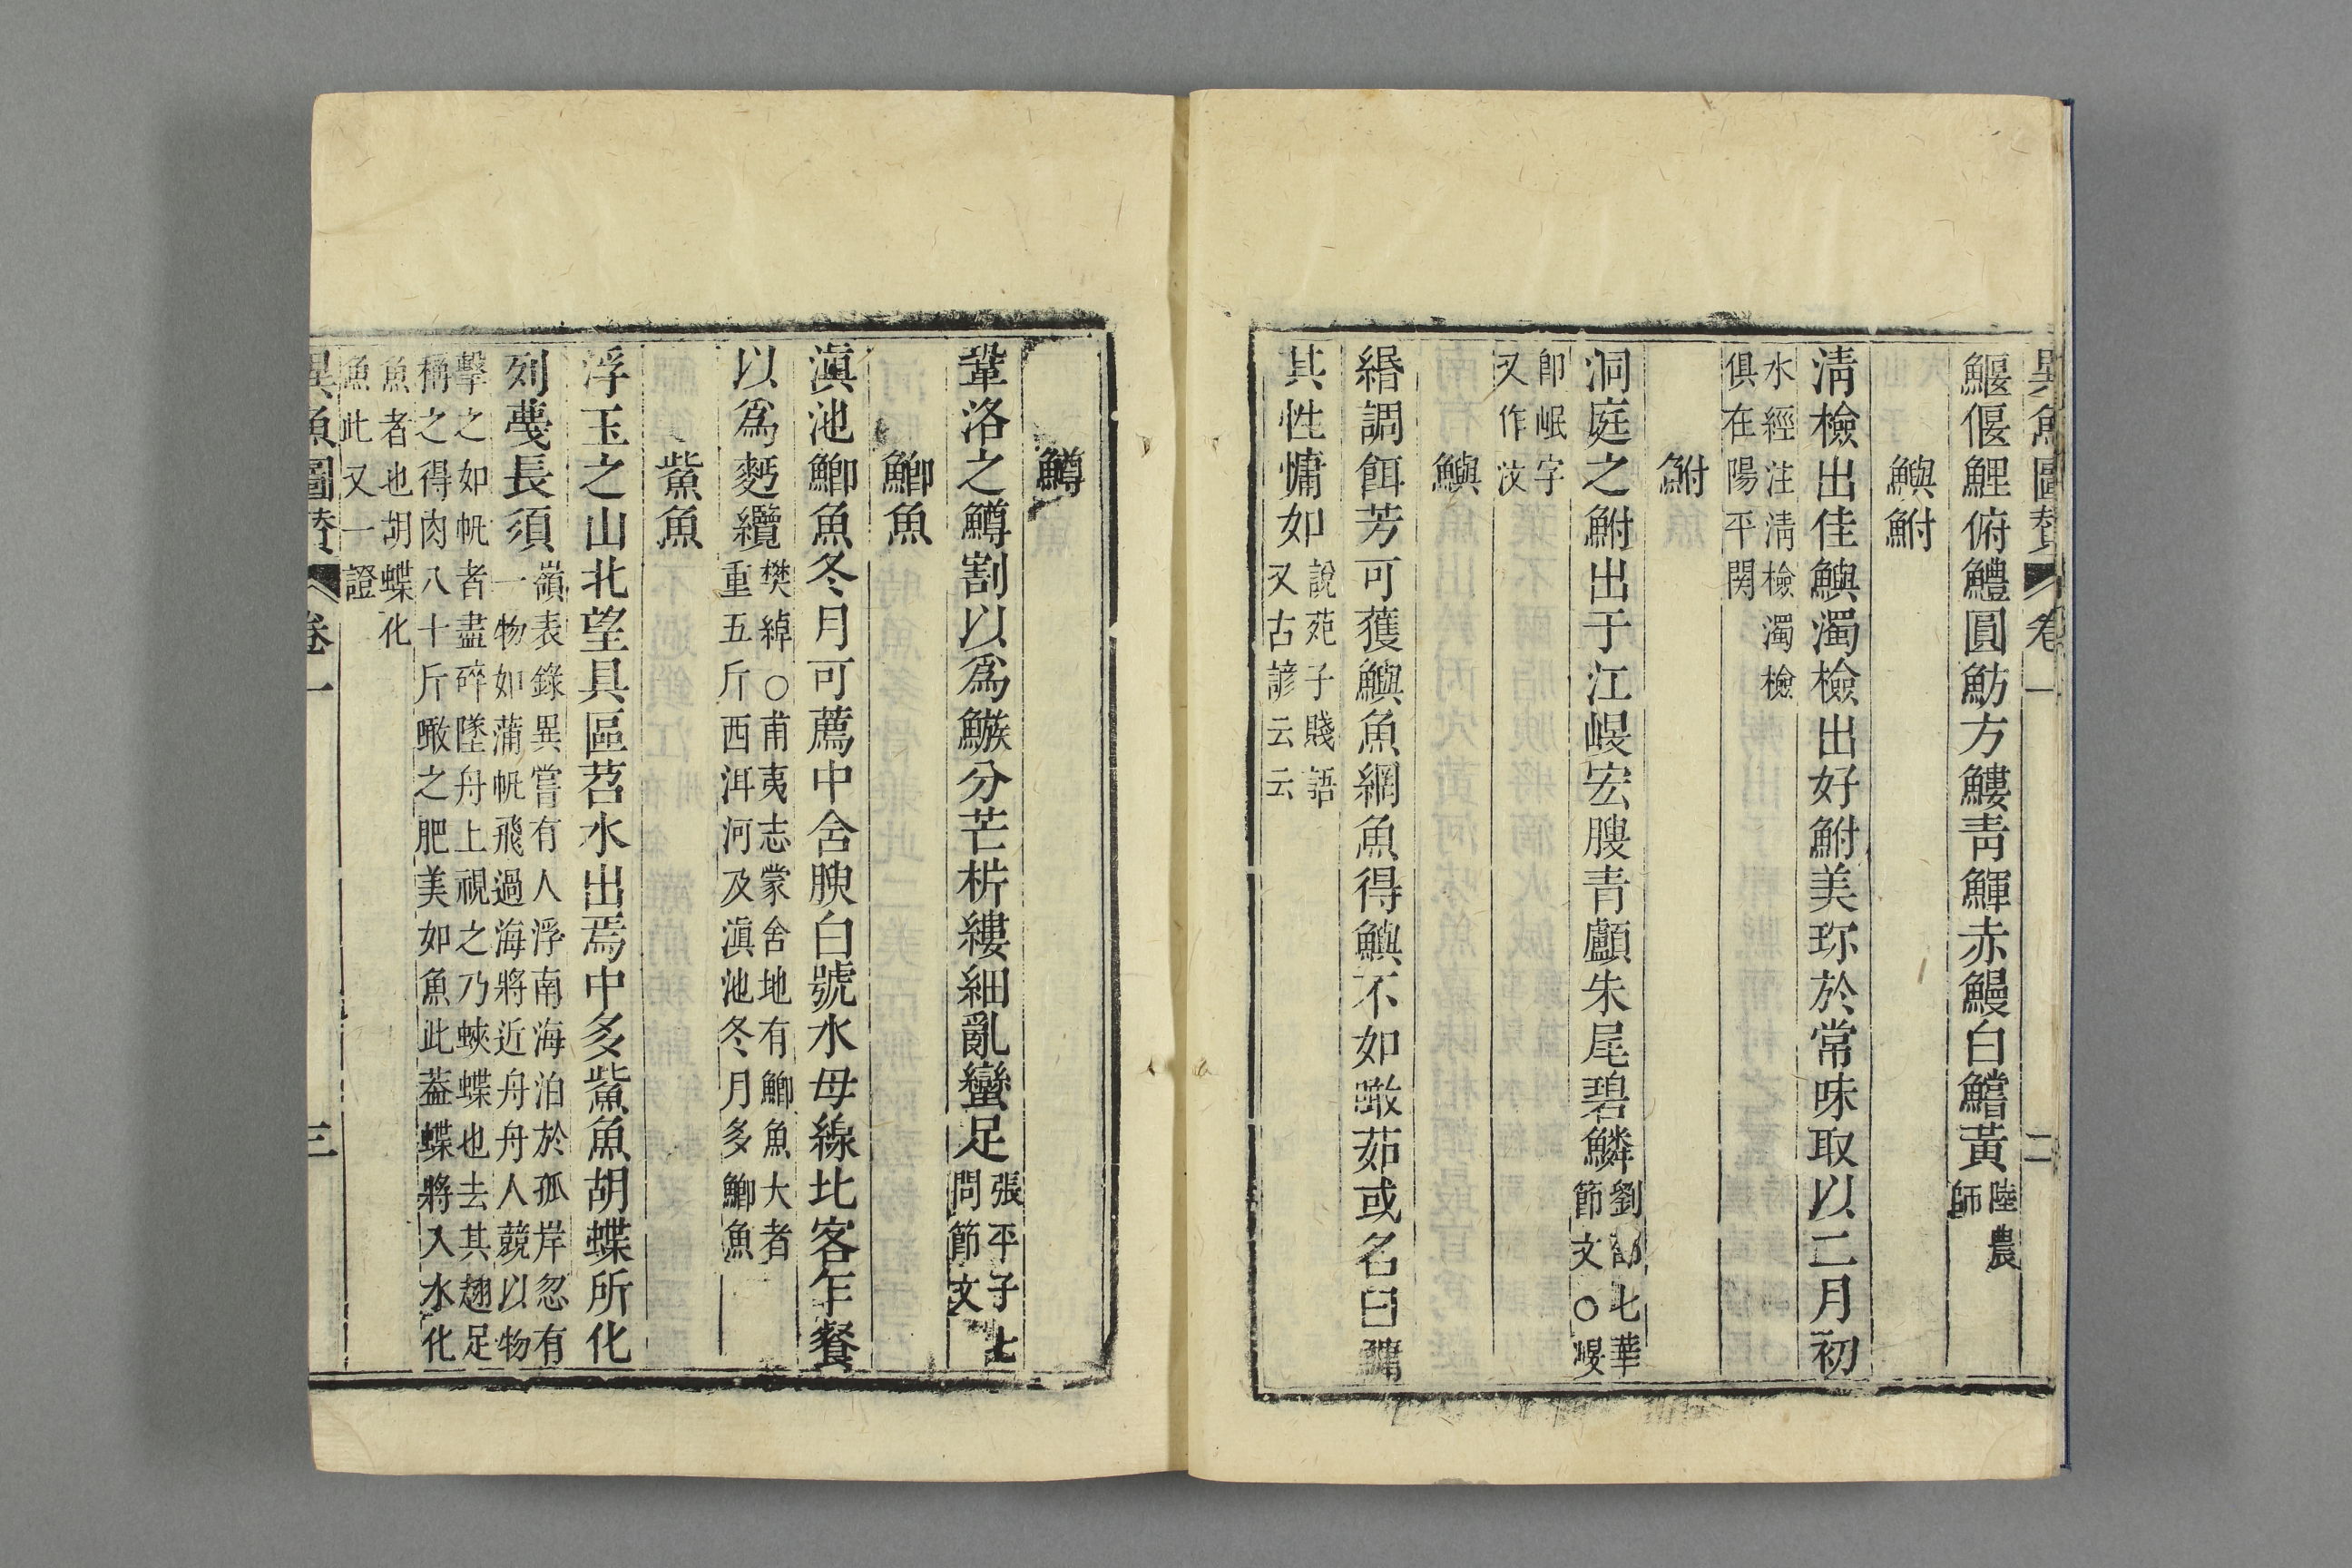 異魚圖贊 卷一 二
鰋偃鯉俯鱧圓魴方鰻青鯶赤鰻白鱨黃陸農師
鱮鮒
淸檢出佳鱮濁檢出好鮒美珎於常味取以二月初
水經注淸檢濁檢
俱在陽平関
鮒
洞庭之鮒出于江㟭宏腴青顱朱尾碧鱗劉劭七華節文○㟭
卽岷字
又作汶
鱮
緡調餌芳可獲鱮魚網魚得鱮不如啖茹或名曰鱅
其性慵如說苑子賤語又古諺云云
鱒
鞏洛之鱒割以爲鯸分芒析縷細亂蠻足張平子七問節文
鯽魚
滇池鯽魚冬月可薦中含腴白號水母線北客乍餐
以爲麪纜樊綽○甫夷志蒙舍地有鯽魚大者重五斤西洱河及滇池冬月多鯽魚
鮆魚
浮玉之山北望具區苕水出焉中多鮆魚胡蝶所化
列蔑長須嶺表錄異嘗有人浮南海泊於孤岸忽有一物如蒲帆飛過海將近舟舟人競以物
擊之如帆者盡碎墜舟上視之乃蛺蝶也去其翅足
稱之得肉八十斤噉之肥美如魚此葢蝶將入水化
魚者也胡蝶化
魚此又一證
異魚圖贊 卷一 三